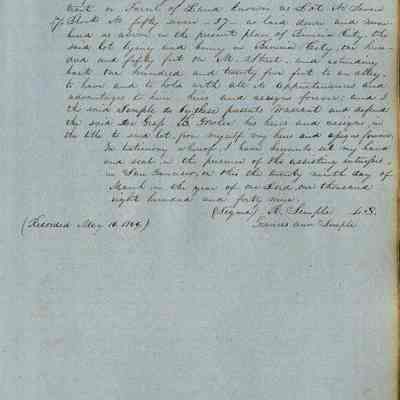 tract or Parcel of Land known as Lot No Seven
7 of Block No fifty seven - 57 - as laid down and num
bered as above in the present plan of Benicia City, the
said lot lying and being in Benicia City, one hun-
dred and fifty feet on M. Street, and extending
back one hundred and twenty five feet to an alley.
to have and to hold with all its appurtenances and
advantages to him heirs and assigns forever, and
the said Semple do by these presents warrant and defend
the said B. his heirs and assigns in
the title to said lot, from myself my heirs and assigns forever,
In testimony whereof, I have hereunto set my hand
and seal in the presence of the assisting
in San Francisco, on this the twenty ninth day of
March in the year of our Lord one thousand
eight hundred and forty nine.
(Signed) R. Semple L.S.
(Recorded May 10, 1849.) Frances Ann Semple